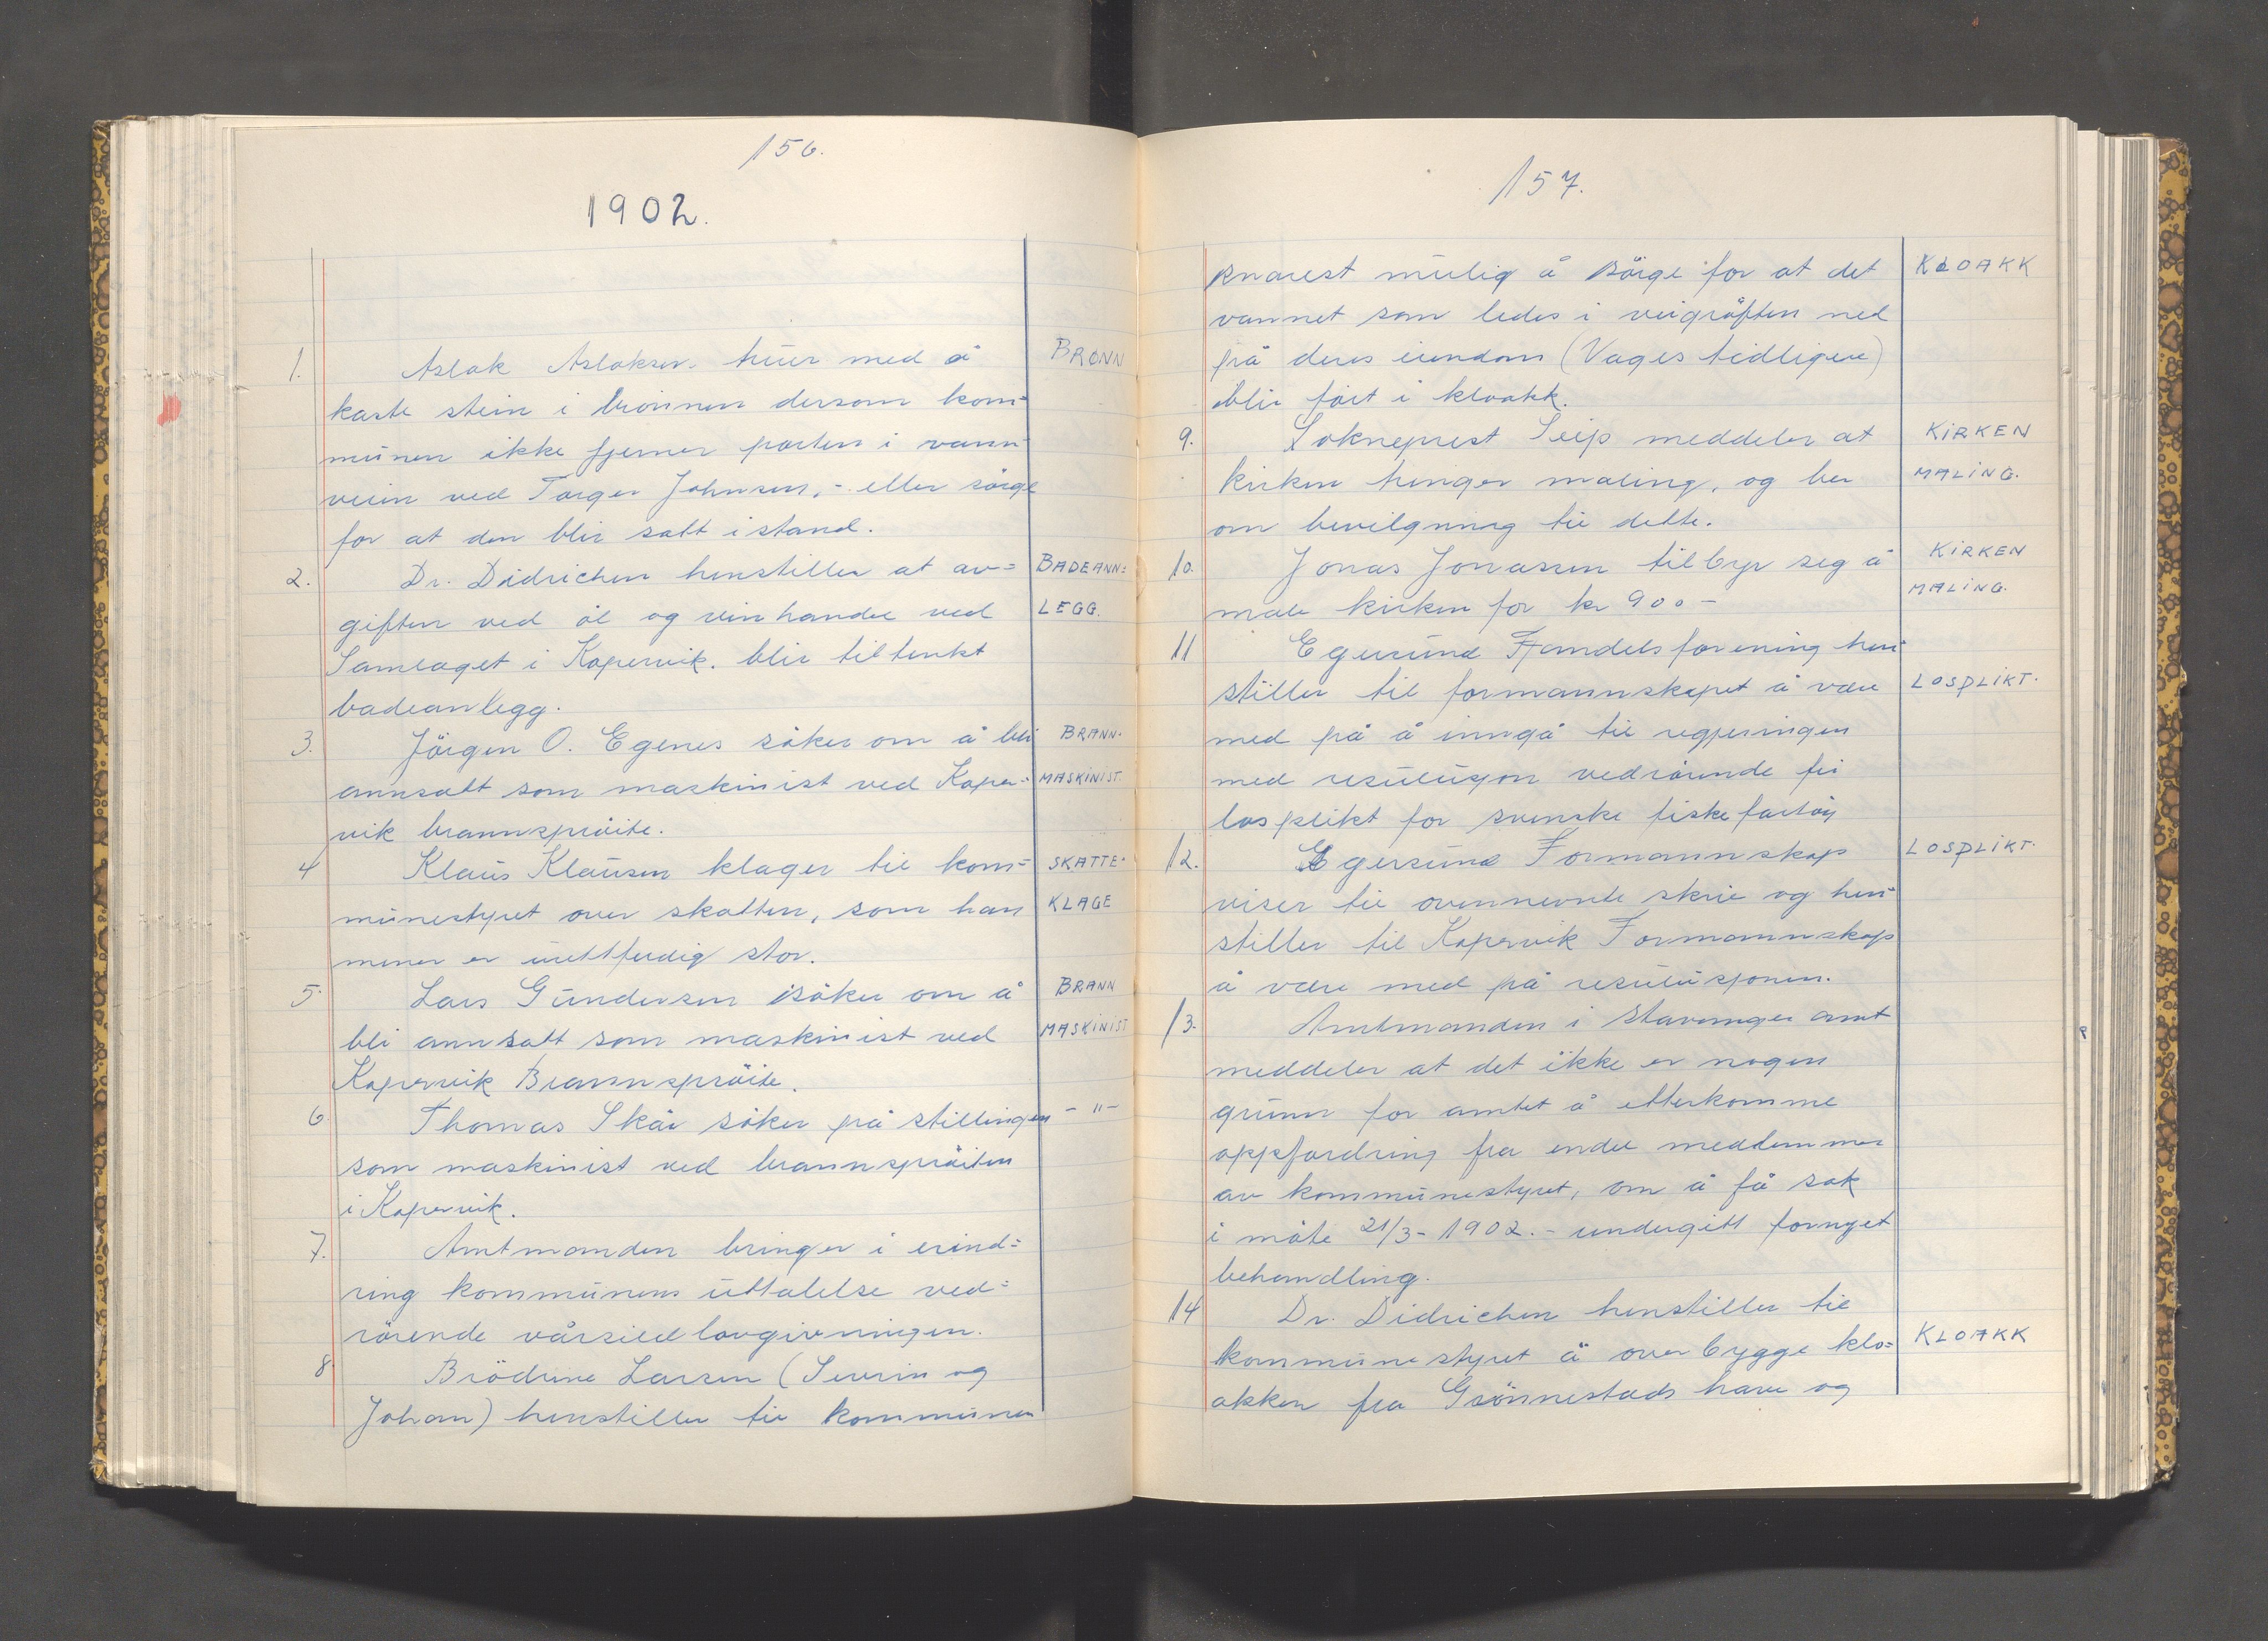 156.
1902.
1. Aslak Aslaksen. truer med å BRØNN
kaste stein i brönnen dersom kom=
munen ikke fjerner porten i vann-
veien ved Torger Johnsen, - eller sörge
for at den blir satt istand.
2. Dr. Didrichen henstiller at av= BADEANN=
giften ved öl og vinhandel ved LEGG.
Samlaget i Kopervik. blir tiltenkt
badeanlegg.
3. Jörgen O. Egenes söker om å bli BRANN-
annsatt som maskinist ved Koper= MASKINIST.
vik brannspröite.
4 Klaus Klausen klager til kom= SKATTE-
munestyret over skatten, som han KLAGE
mener er urettferdig stor.
5. Lars Gundersen söker om å BRANN
bli annsatt som maskinist ved MASKINIST
Kopervik Brannspröite.
6. Thomas Skår söker på stillingen - " -
som maskinist ved brannspröiten
i Kopervik.
7. Amtmanden bringer i erind=
ring kommunens uttalelse ved=
rörende vårsildlovgivningen.
8 Brödrene Larsen (Severin og
Johan) henstiller til kommunen
157.
snarest mulig å sörge for at det KLOAKK
vannet som ledes i veigröften ned
på deres eiendom (Vages tidligere)
blir fört i kloakk.
9. Sokneprest Seip meddeler at KIRKEN
kirken trenger maling, og ber MALING.
om bevilgning til dette.
10. Jonas Jonassen tilbyr seg å KIRKEN
male kirken for kr 900 - MALING.
11 Egersund Handelsforening hen-
stiller til formannskapet å være LOSPLIKT.
med på å inngå til regjeringen
med resulusjon vedrörende fri
losplikt for svenske fiskefartöy
12. Egersund Formannskap LOSPLIKT.
viser til ovennevnte skriv og hen-
stiller til Kopervik Formannskap
å være med på resulusjonen.
13. Amtmanden i Stavanger amt
meddeler at det ikke er nogen
grunn for amtet å etterkomme
oppfordring fra endel medlemmer
av kommunestyret, om å få sak
i möte 21/3 - 1902. - undergitt fornyet
behandling.
14 Dr. Didrichen henstiller til
kommunestyret å overbygge klo= KLOAKK
akken fra Grönnestads have og